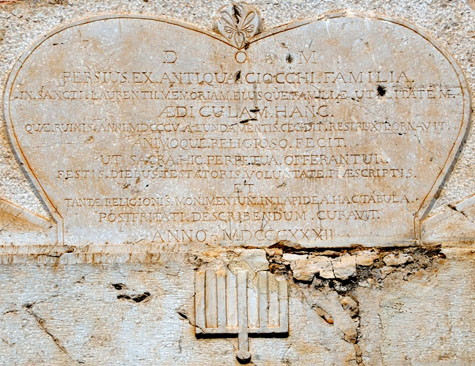 D O M
PERSIUS.EX.ANTIQUA.CIOCCHI.FAMILIA
IN.SANCTI.LAURENTII.MEMORIAM.EIUSQUE.FAMILIÆ
ÆDICULAM.HANC.
QUÆ.RUINIS.ANNI.MDCCCV.A.FUNDAMENTIS.CECIDIT.RESTRUXIT.ORNAVIT
ANIMOQUE.RELIGIOSO.FECIT.
UT.SACRA.HIC.PERPETUA.OFFERANTUR
FESTIS.DIEBUS.TESTATORIS.VOLUNTATE.PRÆSCRIPTIS.
ET
TANTÆ.RELIGIONIS.MONIMENTUM.IN.LAPIDEA.HAC.TABULA.
POSTERITATI.DESCRIBENDUM.CURAVIT.
ANNO.MDCCCXXXII